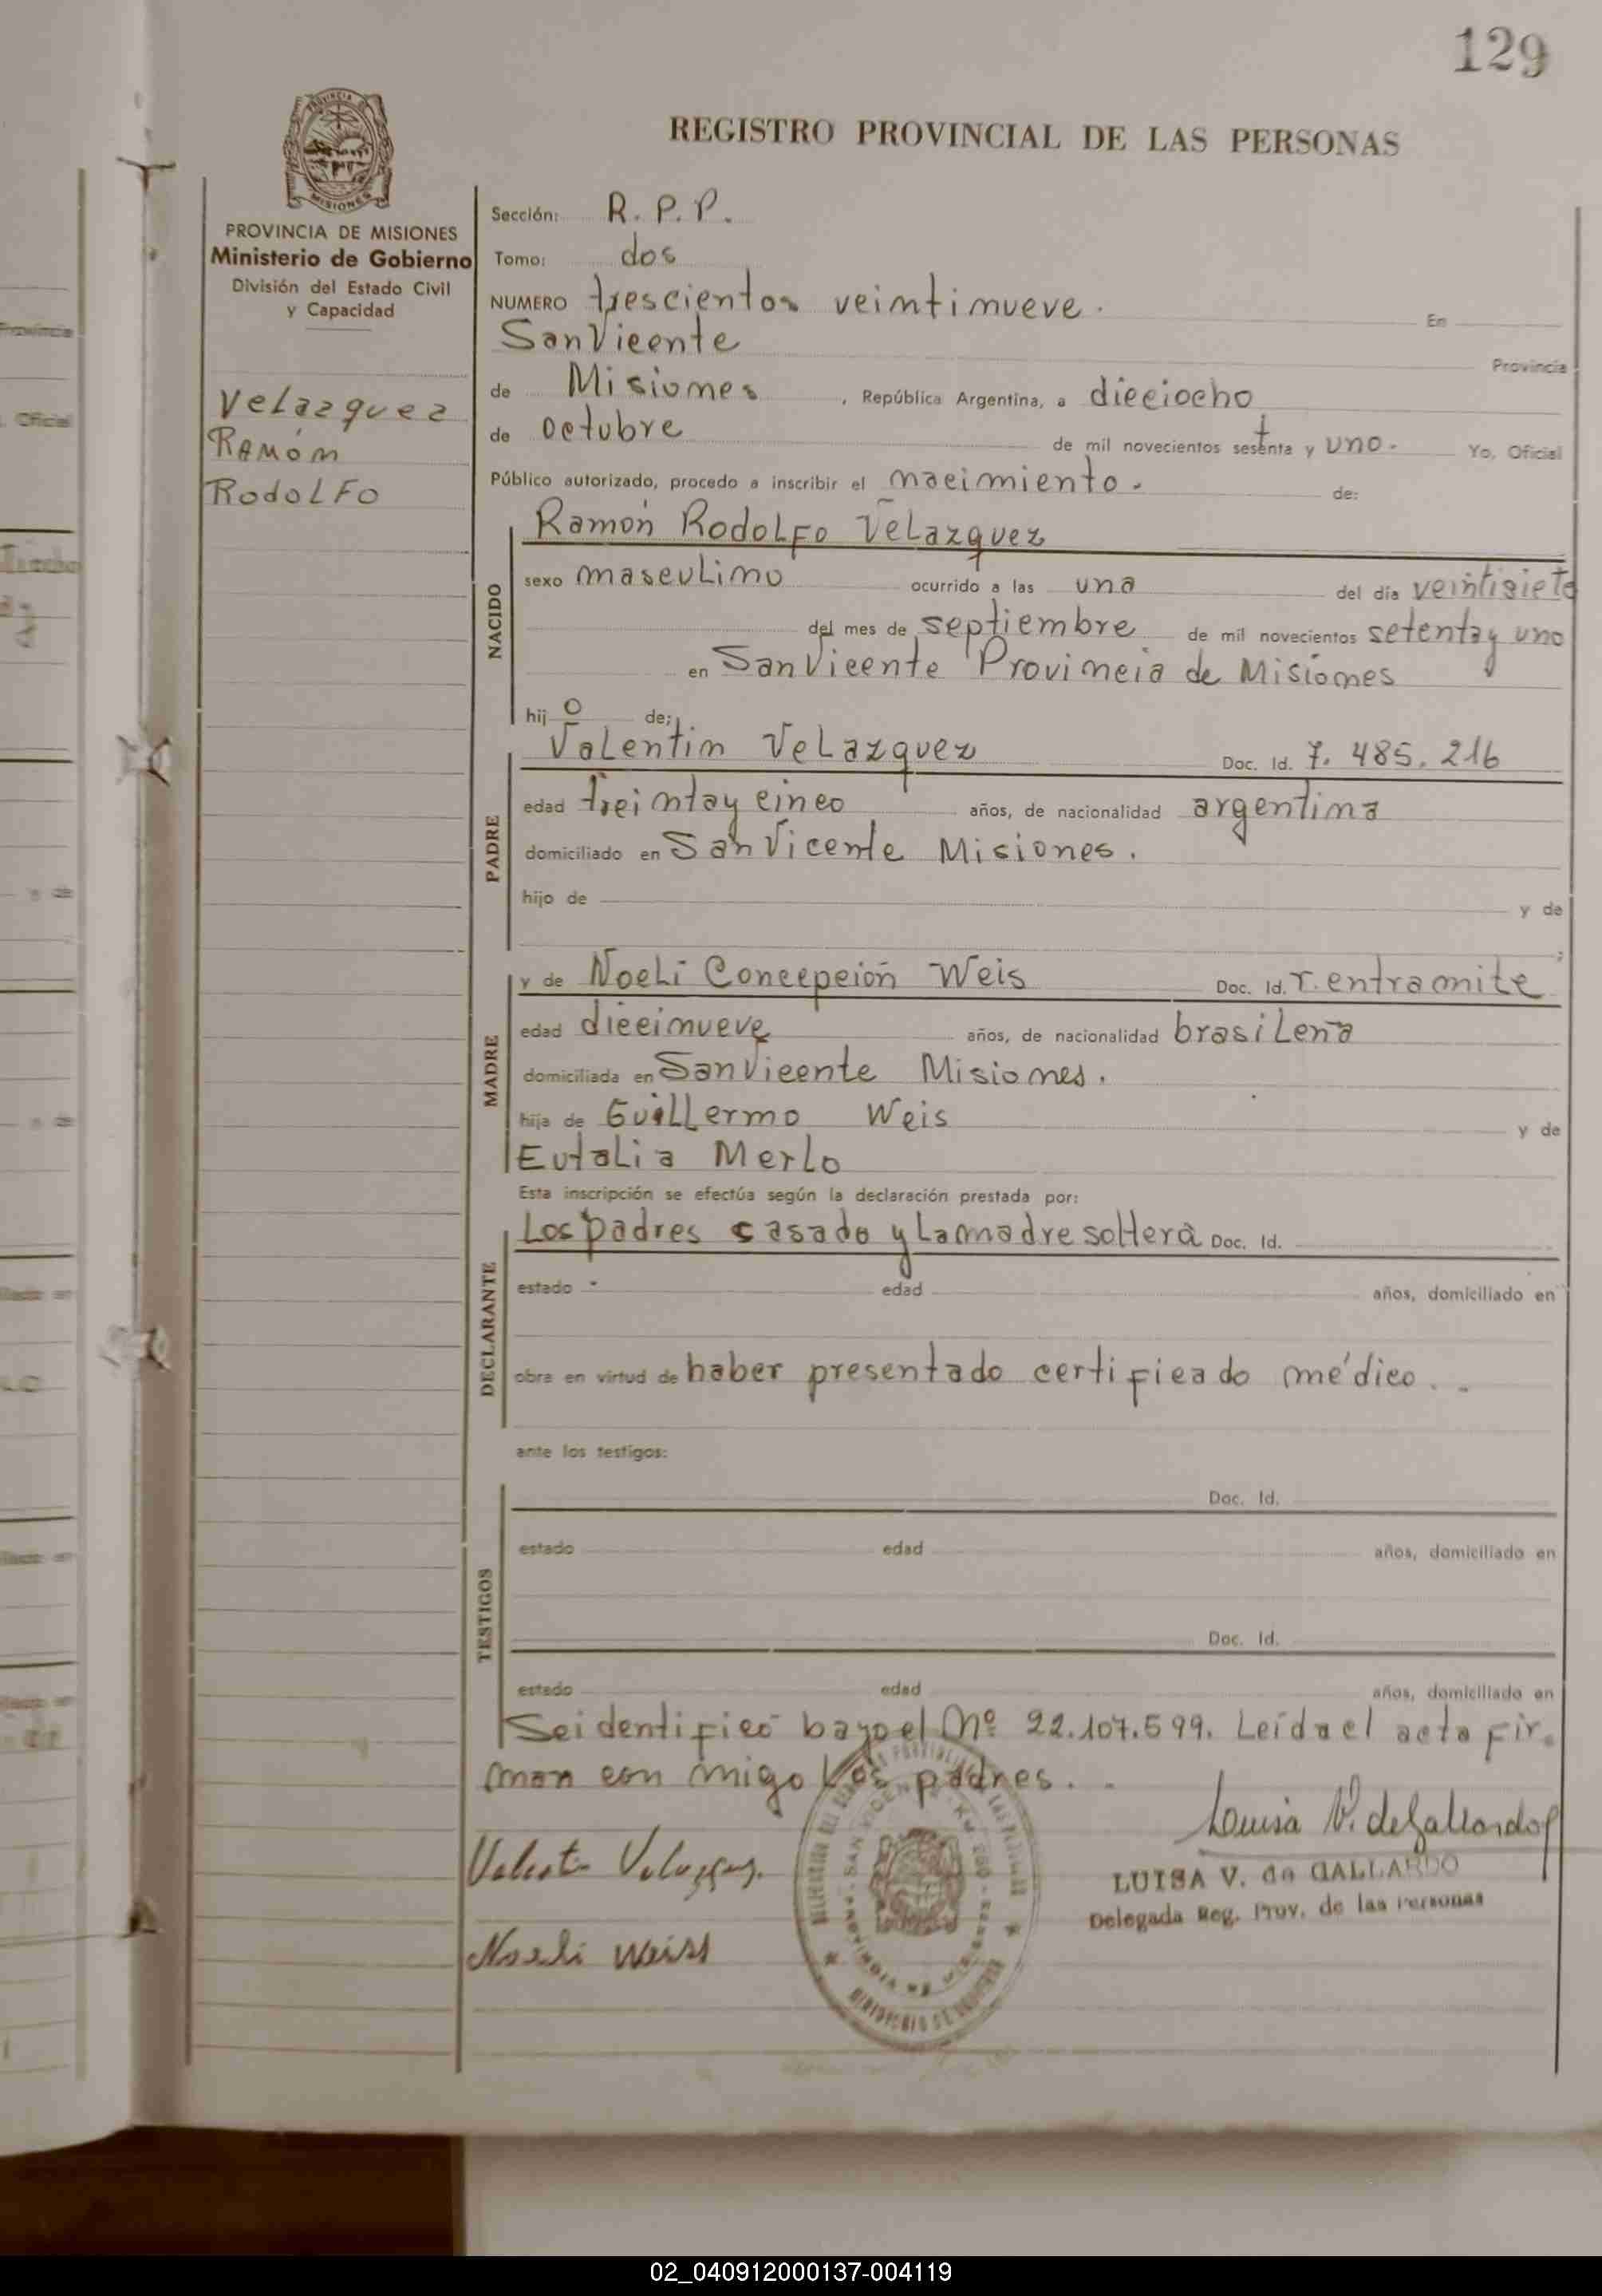 129
REGISTRO PROVINCIAL DE LAS PERSONAS
PROVINCIA DE MISIONES
Ministerio de Gobierno
División del Estado Civil
y Capacidad
Velazquez
Ramón
Rodolfo
Sección: R. P. P.
Tomo: dos
NUMERO trescientos veintinueve. En
San Vicente Provincia
de Misiones, República Argentina, a dieciocho
de octubre de mil novecientos sesenta y uno. Yo, Oficial
Público autorizado, procedo a inscribir el nacimiento. de:
NACIDO
Ramón Rodolfo Velazquez
sexo masculino ocurrido a las una del día veintisiete
del mes de septiembre de mil novecientos setenta y uno
en San Vicente Provincia de Misiones
hij o de;
PADRE
Valentin Velazquez Doc. Id. 7.485.216
edad treinta y cinco años, de nacionalidad argentina
domiciliado en San Vicente Misiones.
hijo de y de
;
MADRE
y de Noeli Concepción Weis Doc. Id. r. entramite
edad diecinueve años, de nacionalidad brasileña
domiciliada en San Vicente Misiones.
hija de Guillermo Weis y de
Eutalia Merlo
Esta inscripción se efectúa según la declaración prestada por:
DECLARANTE
Los padres casado y la madre soltera Doc. Id.
estado edad años, domiciliado en
obra en virtud de haber presentado certificado médico..
ante los testigos:
TESTIGOS
Doc. Id.
estado edad años, domiciliado en
Doc. Id.
estado edad años, domiciliado en
Se identificó bajo el Nº 22.107.599. Leída el acta fir-
man con migo los padres..
Luisa V. de Gallardo
LUISA V. de GALLARDO
Delegada Reg. Prov. de las Personas
Valentin Velazquez.
Noeli Weiss
02_040912000137-004119